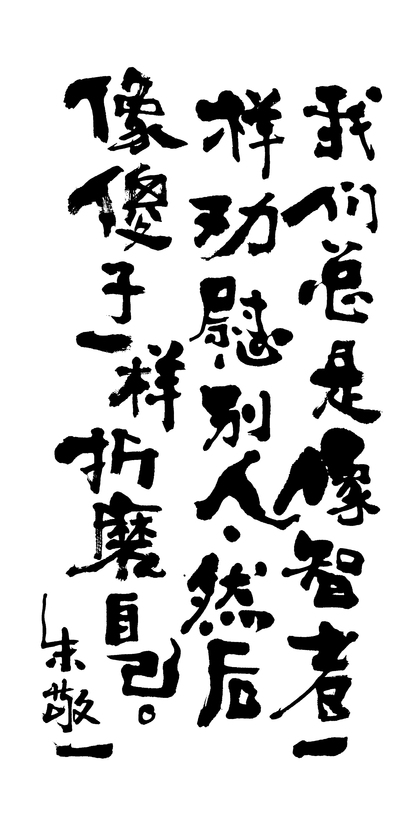 我们总是像智者一
样劝慰别人，然后
像傻子一样折磨自己。
朱敬一